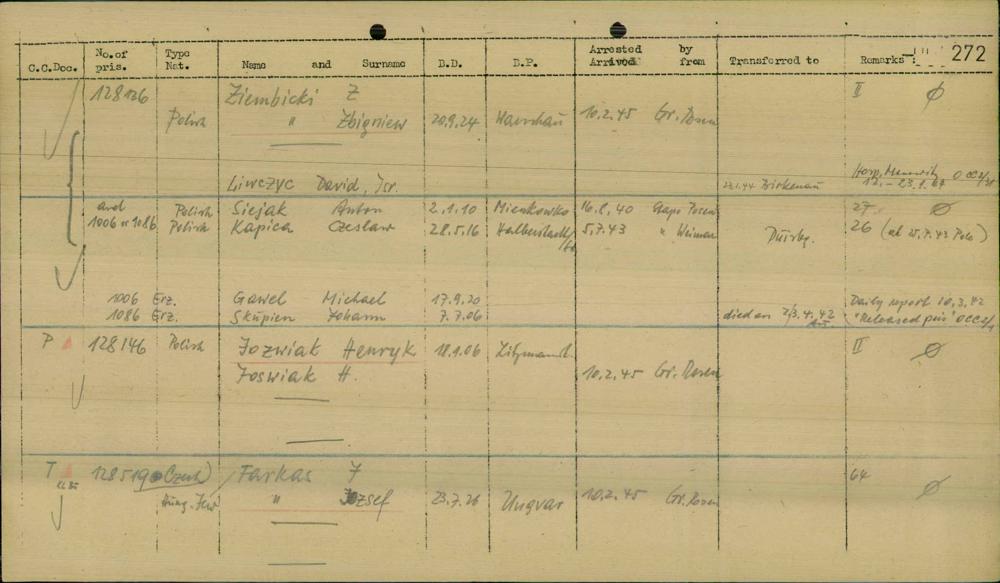 C.C.Doc. No.of pris. Type Nat. Name and Surname B.D. B.P. Arrested Arrived by from Transferred to Remarks : 272
128126 Ziembicki Z II
Polish " Zbigniew 20.9.24 Warschau 10.2.45 Gr. Rosen
Liwczyc David, Isr. Birkenau Hosp. Monowitz
and Polish Siejak Anton 2.1.10 Mienkowko 16.8.40 Stapo Posen 27
1006 or 1086 Polish Kapica Czeslaw 28.5.16 Halberstadt 5.7.43 " Weimar 26
1006 Erz. Gawel Michael 17.9.20 Daily report 10.3.42
1086 Erz. Skupien Johann 7.7.06 died on 2/3.4.42 "Released pris" OCC2/1
P 128146 Polish Jozwiak Henryk 18.1.06 Litzmannst. II
Joswiak H. 10.2.45 Gr. Rosen
T 128519 Czech Farkas J 64
Hung. Jew " Jozsef 23.7.26 Ungvar 10.2.45 Gr. Rosen